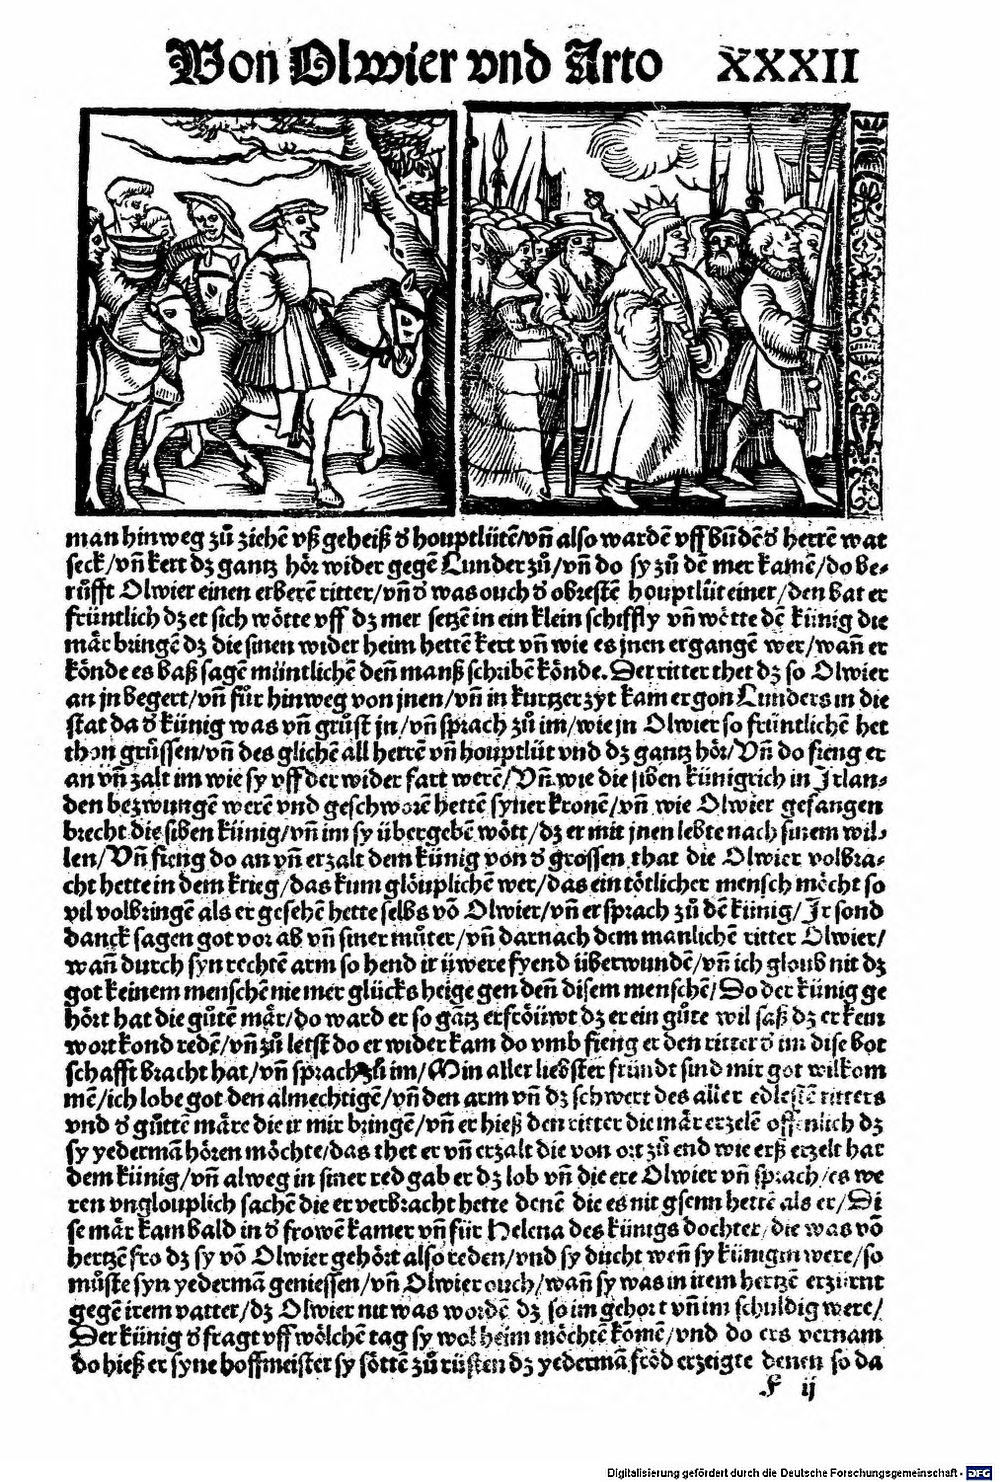 Von Olwier vnd Arto XXXII
man hinweg zů ziehē vß geheiß ď houptlütē/vñ also wardē vff bůdē ď herrē wat
seck/vñ kert dz gantz hör wider gegē Lunder zů/vñ do sy zů dē mer kamē/do be⸗
růfft Olwier einen erberē ritter/vñ ď was ouch ď obrestē houptlüt einer/den bat er
früntlich dz et sich wötte vff dz mer setzē in ein klein schiffly vñ wötte dē künig die
mär bringē dz die sinen wider heim hettē kert vñ wie es jnen ergangē wer/wañ er
könde es baß sagē müntlichē deñ manß schribē könde. Der ritter thet dz so Olwier
an jn begert/vñ fůr hinweg von jnen/vñ in kurtzer zyt kam er gon Lunders in die
stat da ď künig was vñ grůst jn/vñ sprach zů im/wie jn Olwier so früntlichē het
thon grüssen/vñ des glichē all herrē vñ houptlüt vnd dz gantz hör/Vñ do fieng er
an vñ zalt im wie sy vff der wider fart werē/Vñ wie die siben künigrich in Irlan⸗
den bezwungē werē vnd geschworē hettē syner kronē/vñ wie Olwier gefangen
brecht die siben künig/vñ im sy übergebē wött/dz er mit jnen lebte nach sinem wil⸗
len/Vñ fieng do an vñ erzalt dem künig von ď grossen that die Olwier volbra⸗
cht hette in dem krieg/das kum glöuplichē wer/das ein tötlicher mensch möcht so
vil volbringē als er gesehē hette selbs vō Olwier/vñ er sprach zů dē künig/Ir sond
danck sagen got vor ab vñ siner můter/vñ darnach dem manlichē ritter Olwier/
wañ durch syn rechtē arm so hend ir üwere fyend überwundē/vñ ich gloub nit dz
got keinem menschē nie mer glücks heige gen deñ disem menschē/Do der künig ge
hört hat die gůtē mär/do ward er so gātz erfröuwt dz er ein gůte wil saß dz er kein
wort kond redē/vñ zů letst do er wider kam do vmb fieng er den ritter ď im dise bot
schafft bracht hat/vñ sprach zů im/Min aller liebster fründt sind mir got wilkom
mē/ich lobe got den almechtigē/vñ den arm vñ dz schwert des aller edlestē ritters
vnd ď gůttē märe die ir mir bringē/vñ er hieß den ritter die mär erzelē offenlich dz
sy yedermā hören möchte/das thet er vñ erzalt die von ort zů end wie erß erzelt hat
dem künig/vñ alweg in siner red gab er dz lob vñ die ere Olwier vñ sprach/es we
ren vnglouplich sachē die er verbracht hette denē die es nit gsenn hettē als er/Di
se mär kam bald in ď frowē kamer vñ für Helena des künigs dochter/die was vō
hertzē fro dz sy vō Olwier gehört also reden/vnd sy ducht weñ sy künigin were/so
můste syn yedermā geniessen/vñ Olwier ouch/wañ sy was in irem hertzē erzürnt
gegē irem vatter/dz Olwier nit was wordē dz so im gehort vñ im schuldig were/
Der künig ď fragt vff wölchē tag sy wol heim möchtē kōmē/vnd do ers vernam
do hieß er syne hoffmeister sy söttē zů rüsten dz yedermā fröd erzeigte denen so da
F ij
Digitalisierung gefördert durch die Deutsche Forschungsgemeinschaft - DFG